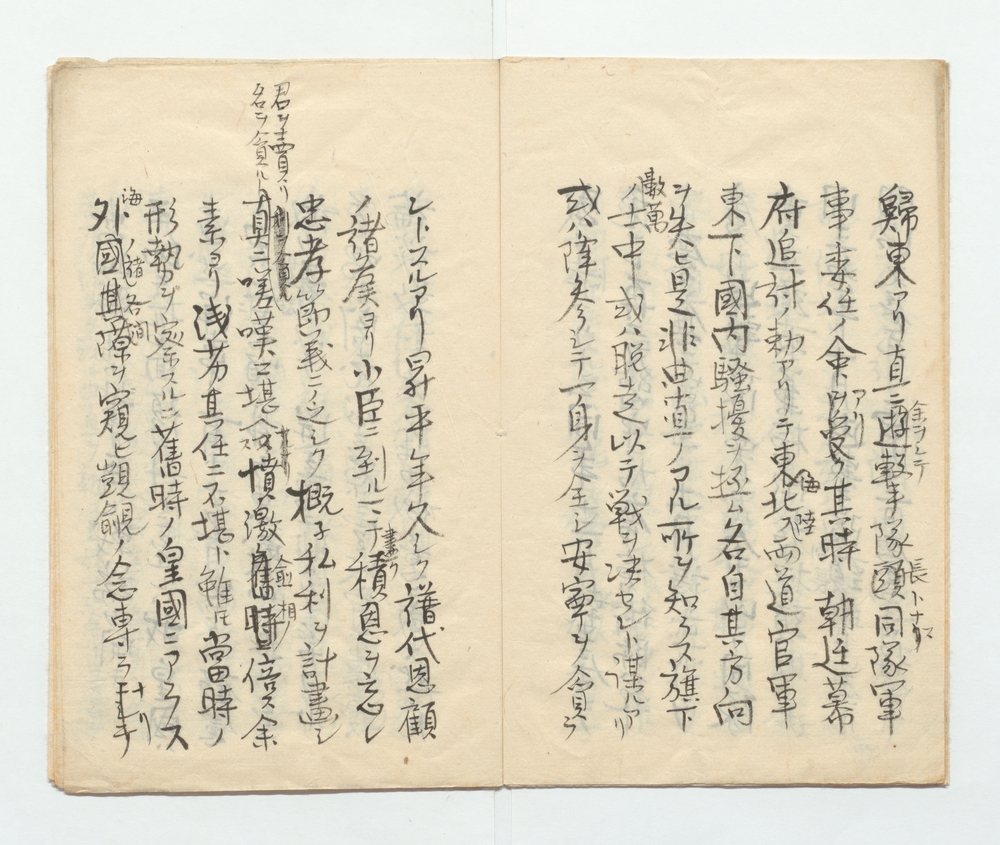 歸東アリ直ニ遊撃隊頭同隊軍
余ヲシテ
長ト
事委任ノ命ヲ受ク其時朝廷幕
アリ
府追討ノ勅アリテ東北西道官軍
海陸
東下國内騒擾ヲ極ム各自其方向
ヲ失ヒ是非曲直ノアル所ヲ知ラス旗下
數萬
ノ士中或ハ脱走以テ戦ヲ决セント謀ルアリ
或ハ降参シテ一身ヲ全シ安寧ヲ貪ラ
ントスルアリ昇平年久シク譜代恩顧
ノ諸侯ヨリ小臣ニ到ルニテ積恩ヲ忘レ
忠孝節義ニ乏シク概子私利ヲ計畫シ
君ヲ賣リ
名ヲ貪ル
真ニ嗟嘆ニ堪ヘ憤激舊時ニ倍ス余
素ヨリ浅劣其任ニ不堪ト雖モ當時ノ
形勢ヲ察スルニ舊時ノ皇國ニアラス
海
外國其隙ヲ窺ヒ覬覦ノ念専ラ
ノ諸各間
ナリ